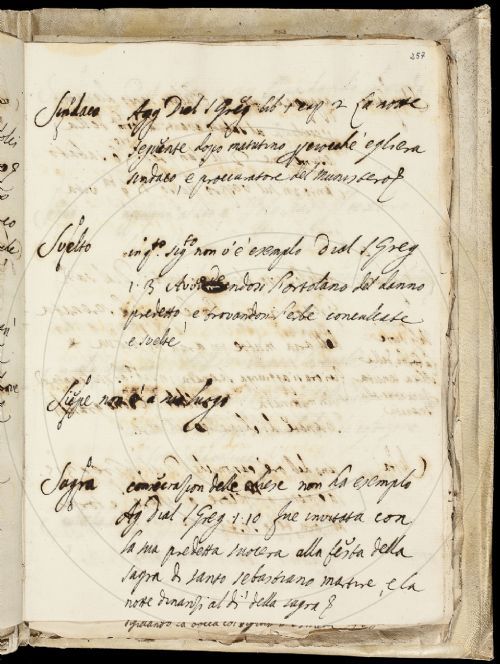 257
Sindaco Agg Dial S Greg lib 1 cap 2 La notte
seguente dopo matutino perocche egli era
sindaco e proccuratore del munistero
Svelto in q.to sig.to non v'è esempio Dial S Greg
1. 3 Avvedendosi l'ortolano del danno
predetto e trovandosi l'erbe conculcate
e svelte
Siepe non è a suo luogo
Sagra consecrazion delle chiese non ha esempio
Ag Dial S Greg 1. 10 fue invitata con
la sua predetta suocera alla festa della
sagra di santo Sebastiano martire, e la
notte dinanzi al dì della sagra